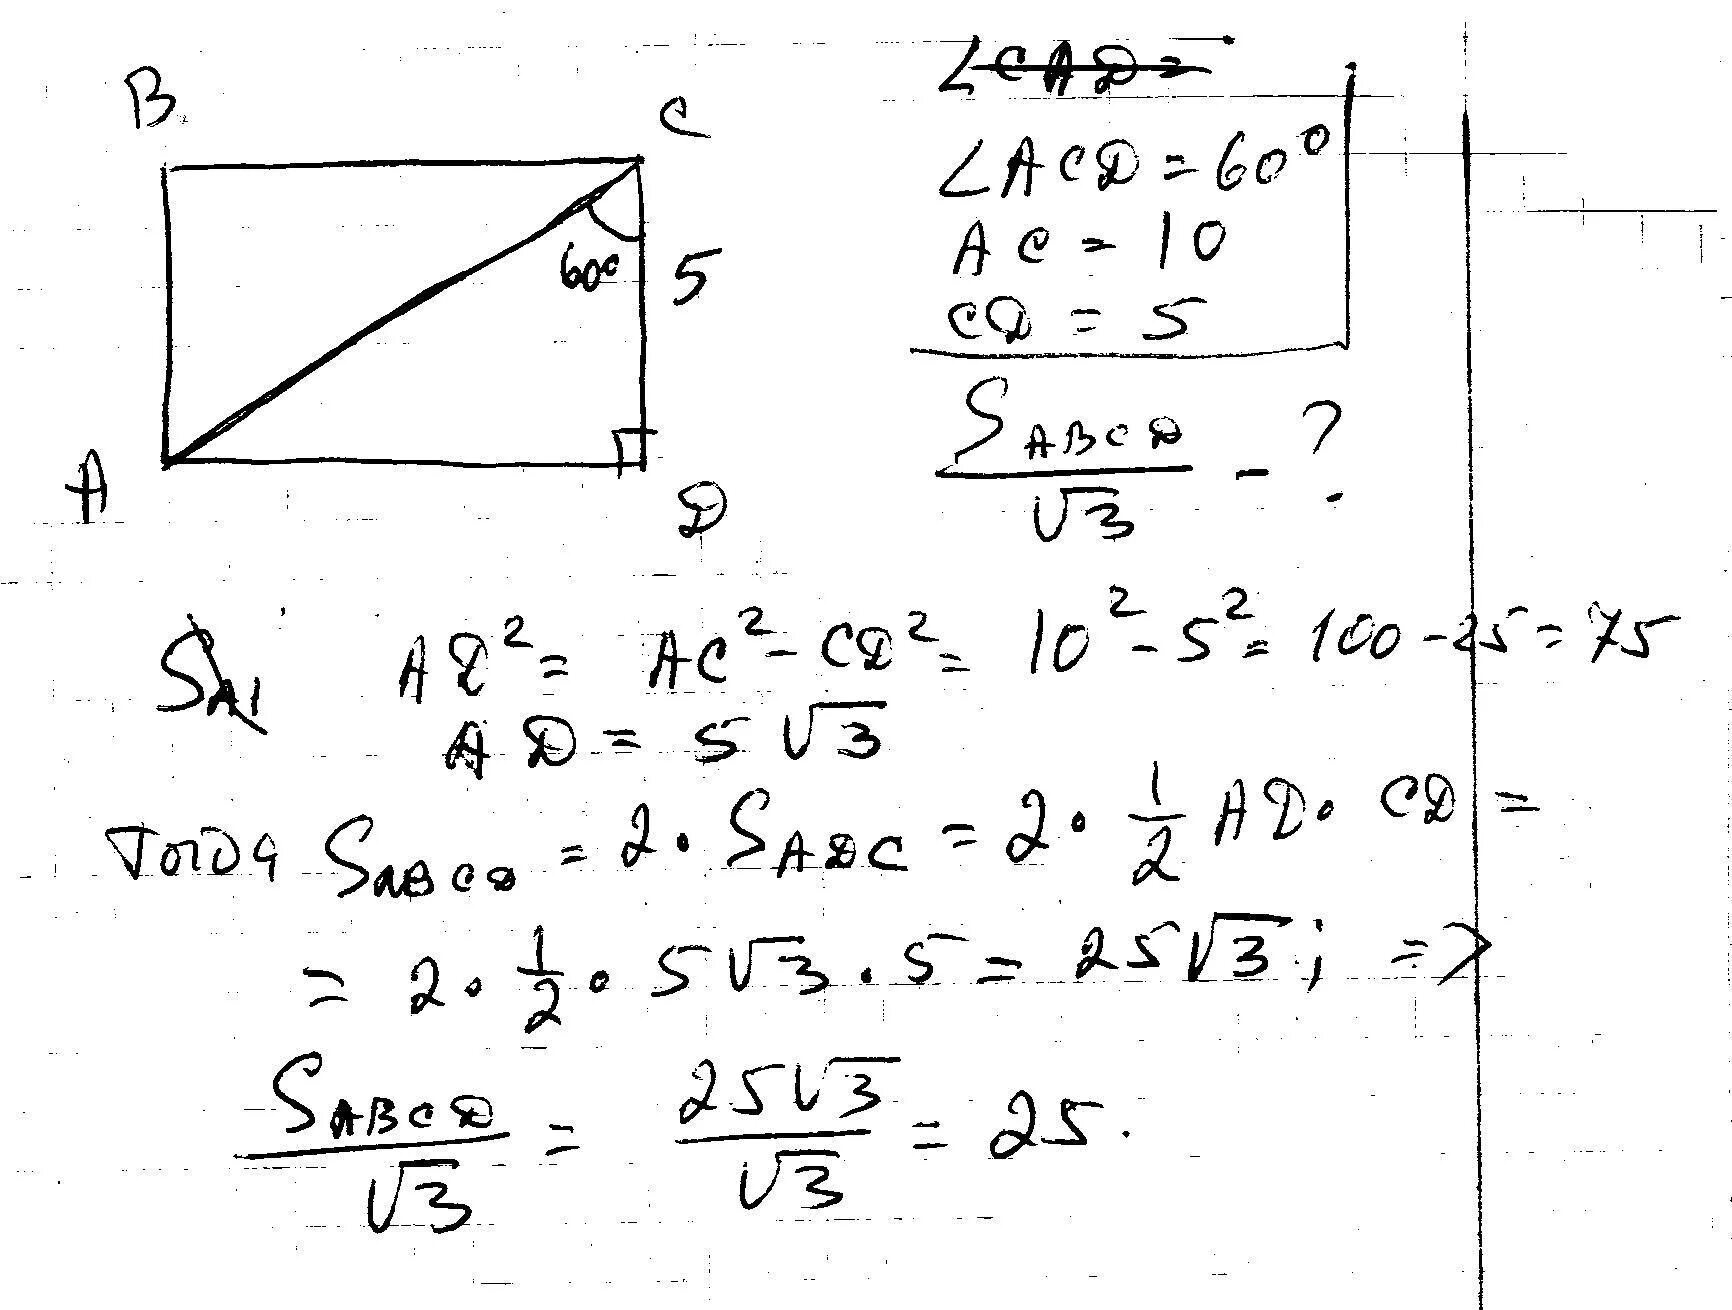 B
C
60°
5
A
D
∠CAD=
∠ACD = 60°
AC = 10
CD = 5
S_ABCD/√3 - ?
S_A1 AD² = AC² - CD² = 10² - 5² = 100 - 25 = 75
AD = 5√3
Тогда S_ABCD = 2 · S_ADC = 2 · 1/2 AD · CD =
= 2 · 1/2 · 5√3 · 5 = 25√3; =>
S_ABCD/√3 = 25√3/√3 = 25.